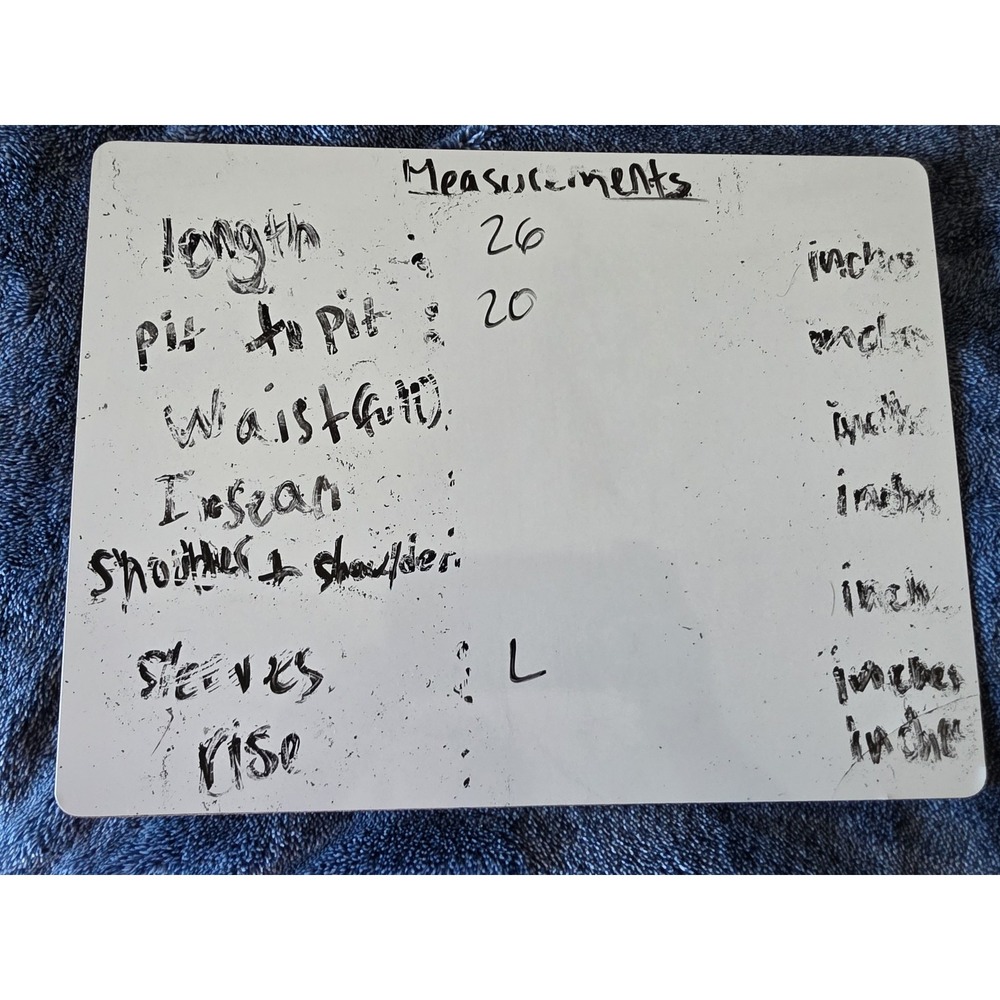 Measurements
length : 26 inches
pit to pit : 20 inches
Waist (full): inches
Inseam : inches
Shoulder + shoulder: inch
Sleeves : L inches
rise : inches